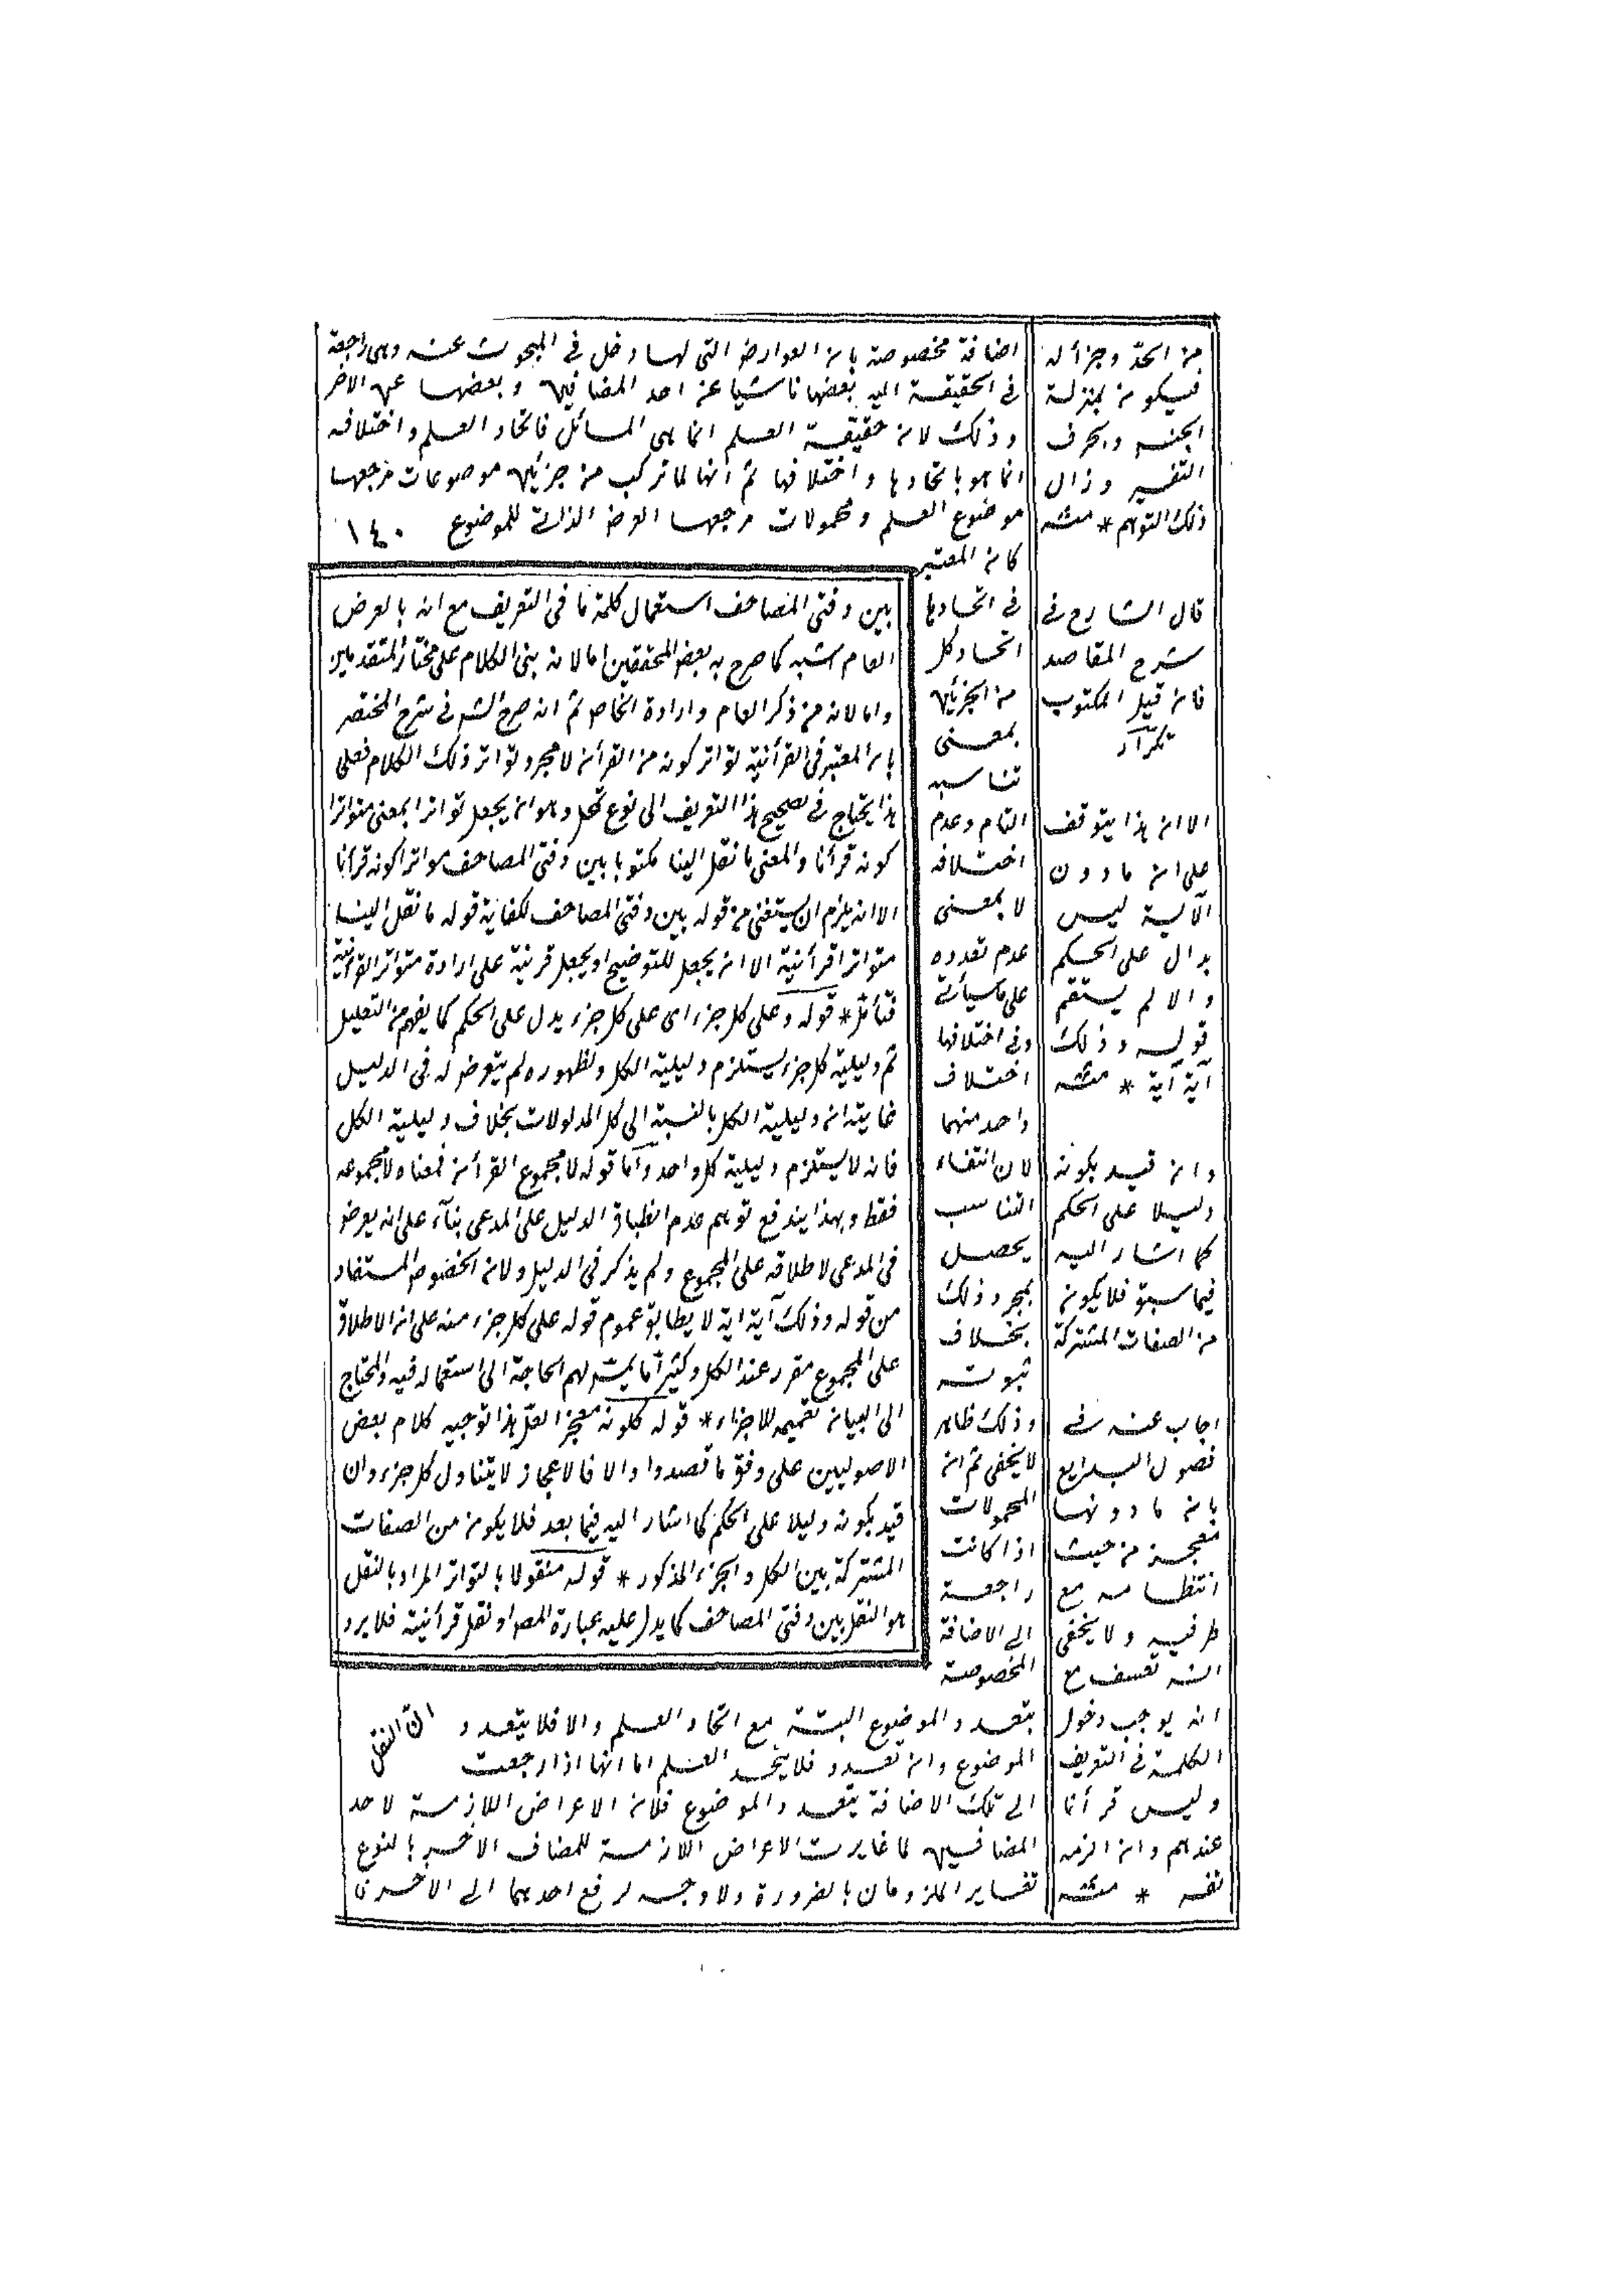 اضافة مخصوصة بان العوارض التى لها دخل فى المبحوث عنه وهى راجعة
فى الحقيقة اليه بعضها ناشيا عن احد المضافين وبعضها عن الاخر
وذلك لان حقيقة العلم انما هى المسائل فاتحاد العلم واختلافه
انما هو باتحادها واختلافها ثم انها لما تركب من جزئين موضوعات مرجعها
موضوع العلم ومحمولات مرجعها العرض الذاتى للموضوع ١٤٠
كان المعتبر
فى اتحادها
اتحاد كل
من الجزئين
بمعنى
تناسبه
التام وعدم
اختلافه
لا بمعنى
عدم تعدده
على ما سيأتى
وفى اختلافها
اختلاف
واحد منهما
لان انتفاء
التناسب
يحصل
بمجرد ذلك
بخلاف
ثبوته
وذلك ظاهر
لا يخفى ثم ان
المحمولات
اذا كانت
راجعة
الى الاضافة
المخصوصة
يتعدد الموضوع البتة مع اتحاد العلم والا فلا يتعدد
الموضوع وان تعدد فلا يتحد العلم اما انها اذا رجعت
الى تلك الاضافة يتعدد الموضوع فلان الاعراض اللازمة لاحد
المضافين لما غايرت الاعراض اللازمة للمضاف الاخر بالنوع
تغاير الملزومان بالضرورة ولا وجه لرفع احدهما الى الاخر
بين دفتى المصاحف استعمال كلمة ما فى التعريف مع انه بالعرض
العام اشبه كما صرح به بعض المحققين اما لانه بنى الكلام على مختار المتقدمين
واما لانه من ذكر العام وارادة الخاص ثم انه صرح الشه فى شرح المختصر
بان المعتبر فى القرأنية تواتر كونه من القرأن لا مجرد تواتر ذلك الكلام فعلى
هذا يحتاج فى تصحيح هذا التعريف الى نوع تمحل وهو ان يجعل تواترا بمعنى متواترا
كونه قرأنا والمعنى ما نقل الينا مكتوبا بين دفتى المصاحف متواترا كونه قرأنا
الا انه يلزم ان يستغنى من قوله بين دفتى المصاحف لكفاية قوله ما نقل الينا
متواترا قرأنية الا ان يجعل للتوضيح او يجعل قرينة على ارادة متواتر القرأنية
فتأمل * قوله وعلى كل جزء اى على كل جزء يدل على الحكم كما يفهم من التعليل
ثم دليلية كل جزء يستلزم دليلية الكل ولظهوره لم يتعرض له فى الدليل
غايته ان دليلية الكل بالنسبة الى كل المدلولات بخلاف دليلية الكل
فانه لا يستلزم دليلية كل واحد واما قوله لا مجموع القرأن فمعناه لا مجموعه
فقط وبهذا يندفع توهم عدم انطباق الدليل على المدعى بناء على انه يعرض
فى المدعى لاطلاقه على المجموع ولم يذكر فى الدليل ولان الخصوص المستفاد
من قوله وذلك آية اية لا يطابق عموم قوله على كل جزء منه على ان الاطلاق
على المجموع مقرر عند الكل وكثيرا ما لهم الحاجة الى استعماله فيه والمحتاج
الى البيان تعميمه للاجزاء * قوله ككونه معجزا لعل هذا توجيه كلام بعض
الاصوليين على وفق ما قصدوا والا فالاعجاز لا يتناول كل جزء وان
قيد بكونه دليلا على الحكم كما اشار اليه فيما بعد فلا يكون من الصفات
المشتركة بين الكل والجزء المذكور * قوله منقولا بالتواتر المراد بالنقل
هو النقل بين دفتى المصاحف كما يدل عليه عبارة المص او نقل قرأنيته فلا يرد
ان النقل
من الحد وجزأ له
فيكون بمنزلة
الجنس والحرف
التفسير وزال
ذلك التوهم * منه
قال الشارح فى
شرح المقاصد
فان قيل المكتوب
الا ان هذا يتوقف
على ان ما دون
الآية ليس
بدال على الحكم
والا لم يستقم
قوله وذلك
آية آية * منه
وان قيد بكونه
دليلا على الحكم
كما اشار اليه
فيما سبق فلا يكون
من الصفات المشتركة
اجاب عنه فى
فصول البدايع
بان ما دونها
معجزة من حيث
انتظامه مع
طرفيه ولا يخفى
انه تعسف مع
انه يوجب دخول
الكلمة فى التعريف
وليس قرأنا
عندهم وان الزمه
نفسه * منه